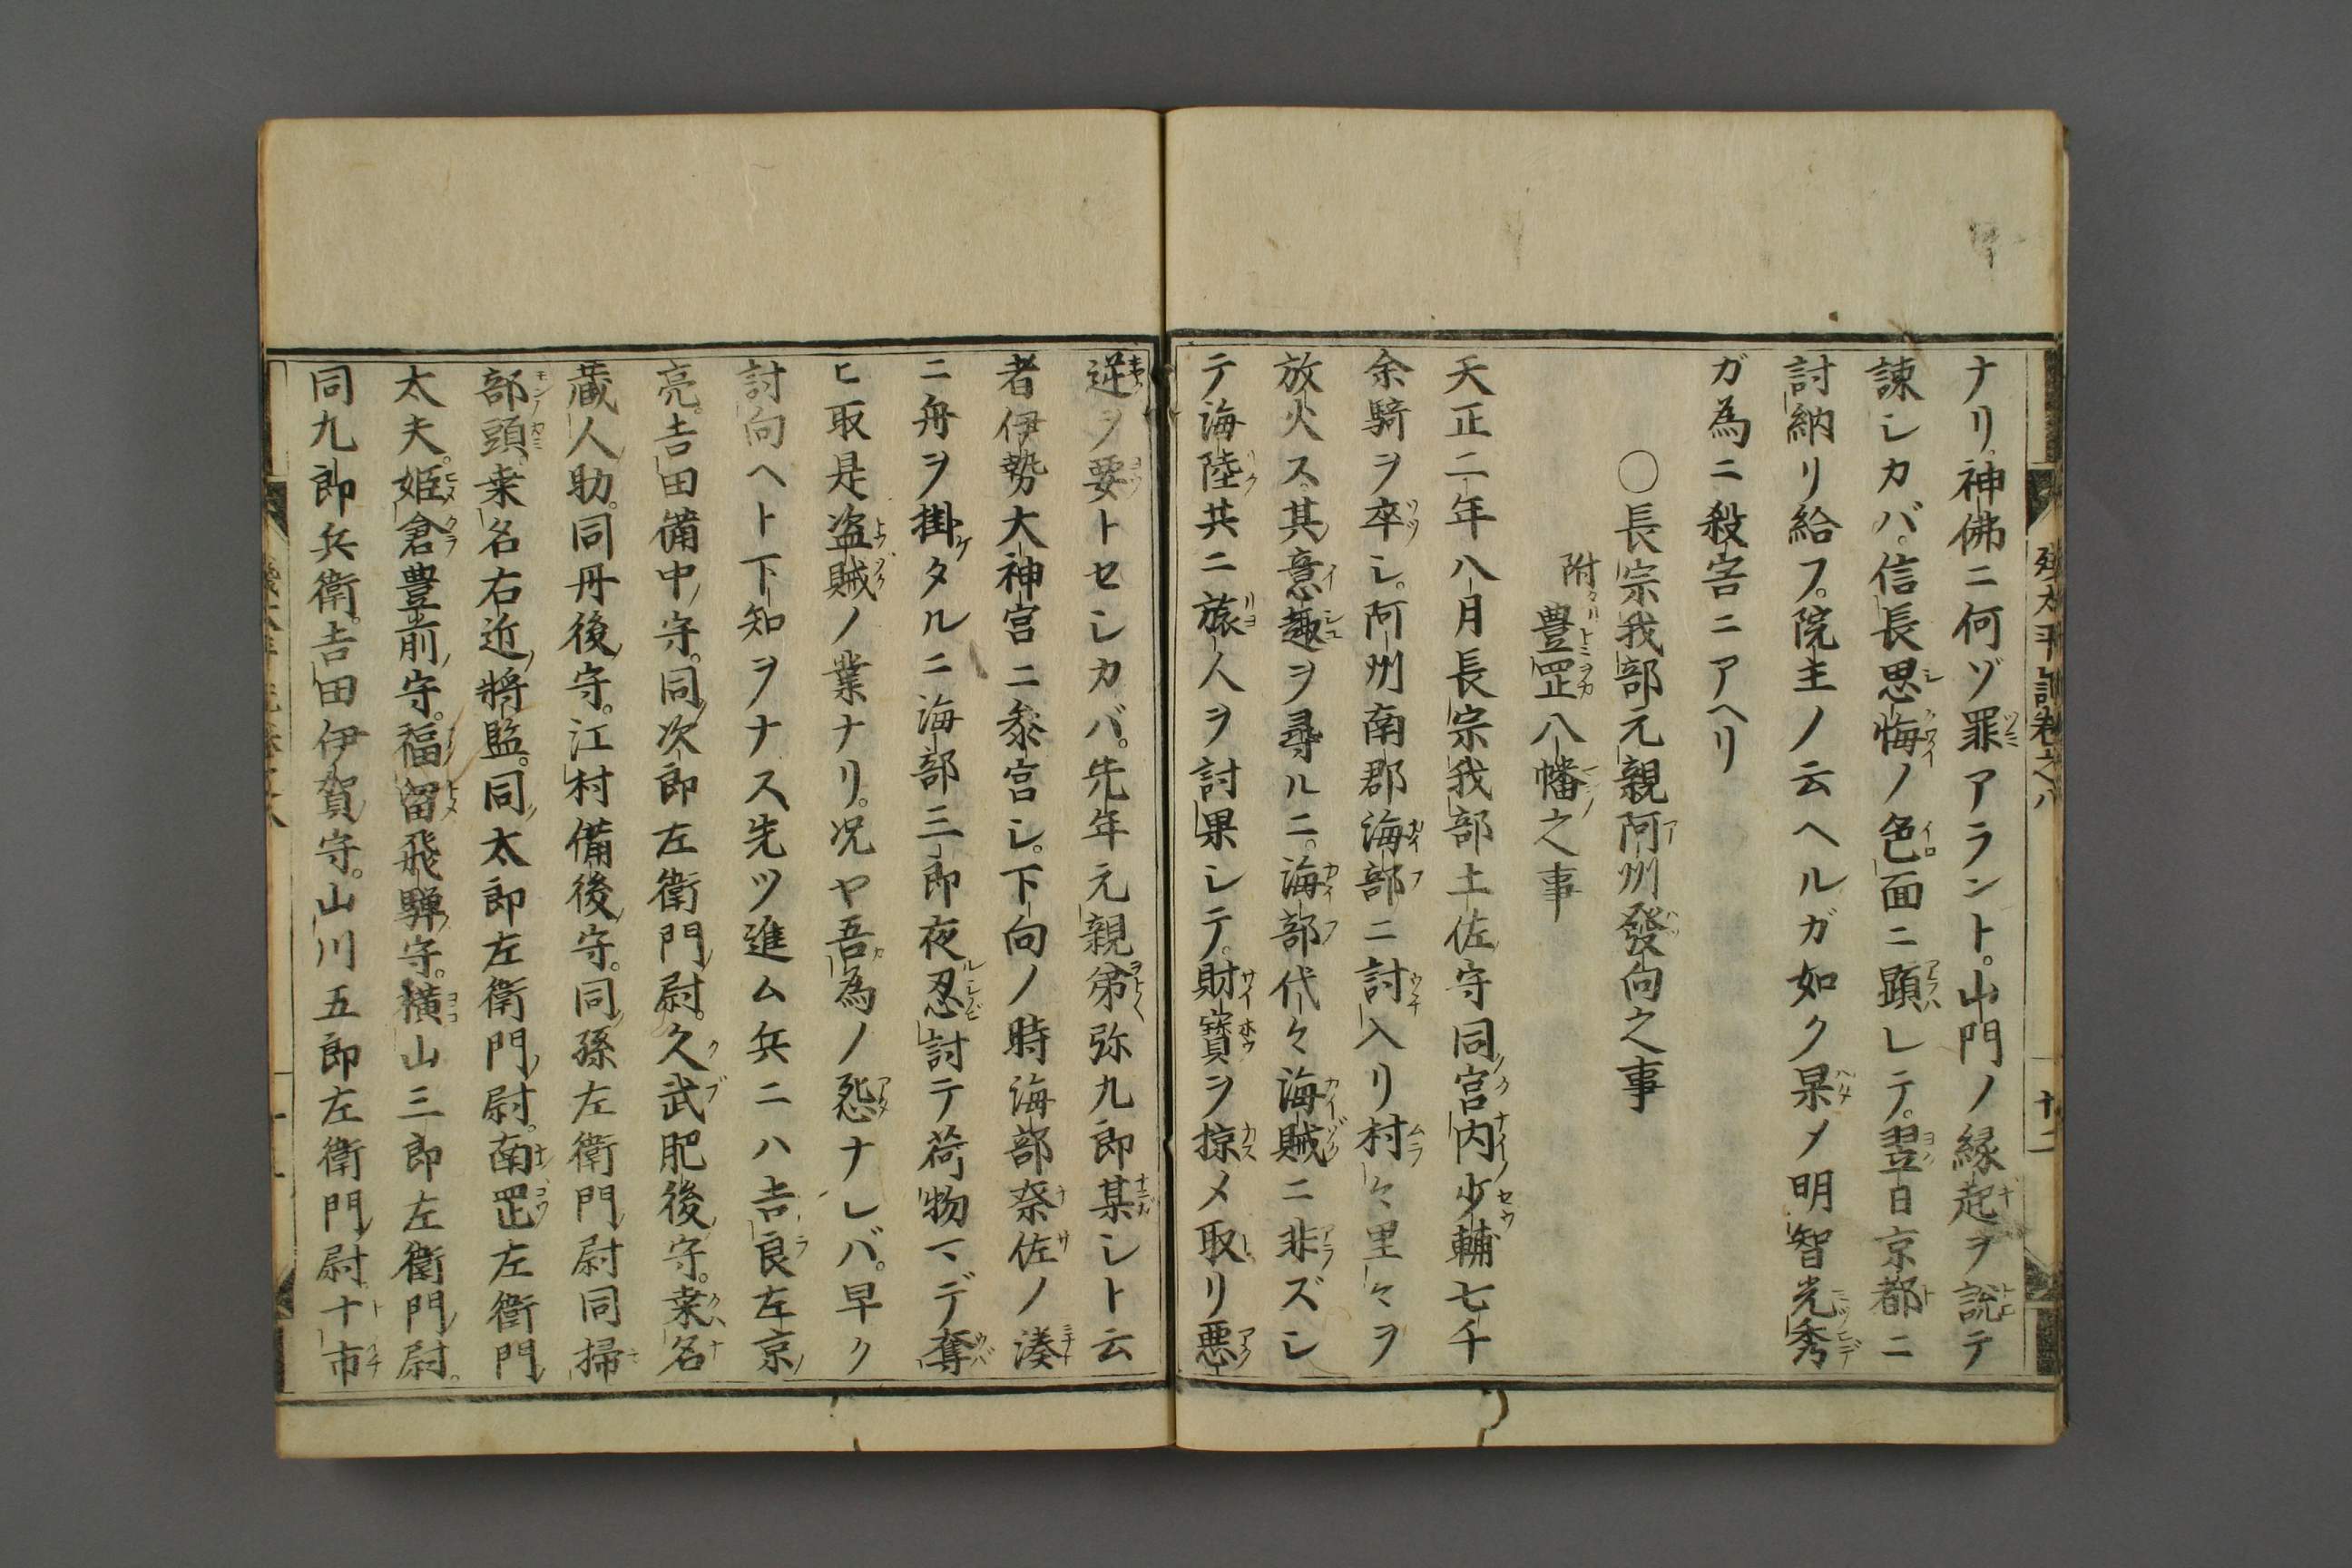 ナリ。神佛ニ何ゾ罪アラント。山門ノ縁起ヲ説テ
諌シカバ。信長思悔ノ色面ニ顕レテ。翌日京都ニ
討納リ給フ。院主ノ云ヘルガ如ク杲メ明智光秀
ガ為ニ殺害ニアヘリ
〇長宗我部元親阿州發向之事
附豊罡八幡之事
天正二年八月長宗我部土佐守同宮内少輔七千
余騎ヲ卒シ。阿州南郡海部ニ討入リ村々里々ヲ
放火ス。其意趣ヲ尋ルニ。海部代々海賊ニ非ズシ
テ海陸共ニ旅人ヲ討果シテ。財寳ヲ掠メ取リ悪
逆ヲ要トセシカバ。先年元親弟弥九郎某シト云
者伊勢大神宮ニ参宮シ。下向ノ時海部奈佐ノ湊
ニ舟ヲ掛タルニ海部三郎夜忍討テ荷物マデ奪
ヒ取是盗賊ノ業ナリ。况ヤ吾為ノ怨ナレバ。早ク
討向ヘト下知ヲナス先ツ進ム兵ニハ吉良左京
亮。吉田備中守。同次郎左衛門尉。久武肥後守。桒名
蔵人助。同丹後守。江村備後守。同孫左衛門尉同掃
部頭。桒名右近将監。同太郎左衛門尉。南罡左衛門
太夫。姫倉豊前守。福留飛騨守。横山三郎左衛門尉。
同九郎兵衛。吉田伊賀守。山川五郎左衛門尉。十市